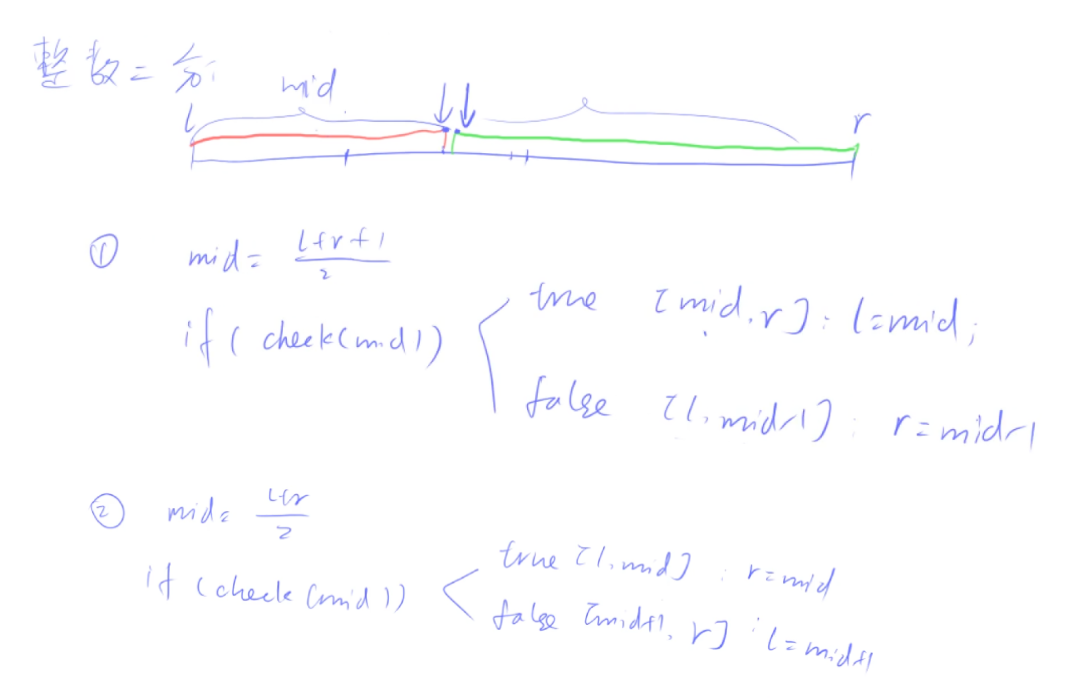 整数二分
mid
l r
① mid = (l+r+1)/2
if ( check(mid))
true [mid, r] : l=mid;
false [l, mid-1] : r=mid-1
② mid = (l+r)/2
if (check(mid))
true [l, mid] : r=mid
false [mid+1, r] : l=mid+1